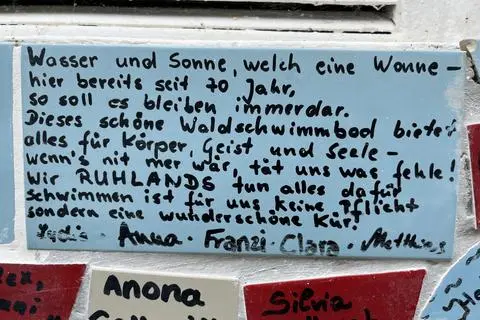 Wasser und Sonne, welch eine Wonne –
hier bereits seit 70 Jahr,
so soll es bleiben immerdar.
Dieses schöne Waldschwimmbad bietet
alles für Körper, Geist und Seele –
wenn's nit mer wär, tät uns was fehle!
Wir RUHLANDS tun alles dafür
schwimmen ist für uns keine Pflicht
sondern eine wunderschöne Kür!
Lydia · Anna · Franzi · Clara · Matthias
Anona
Silvia